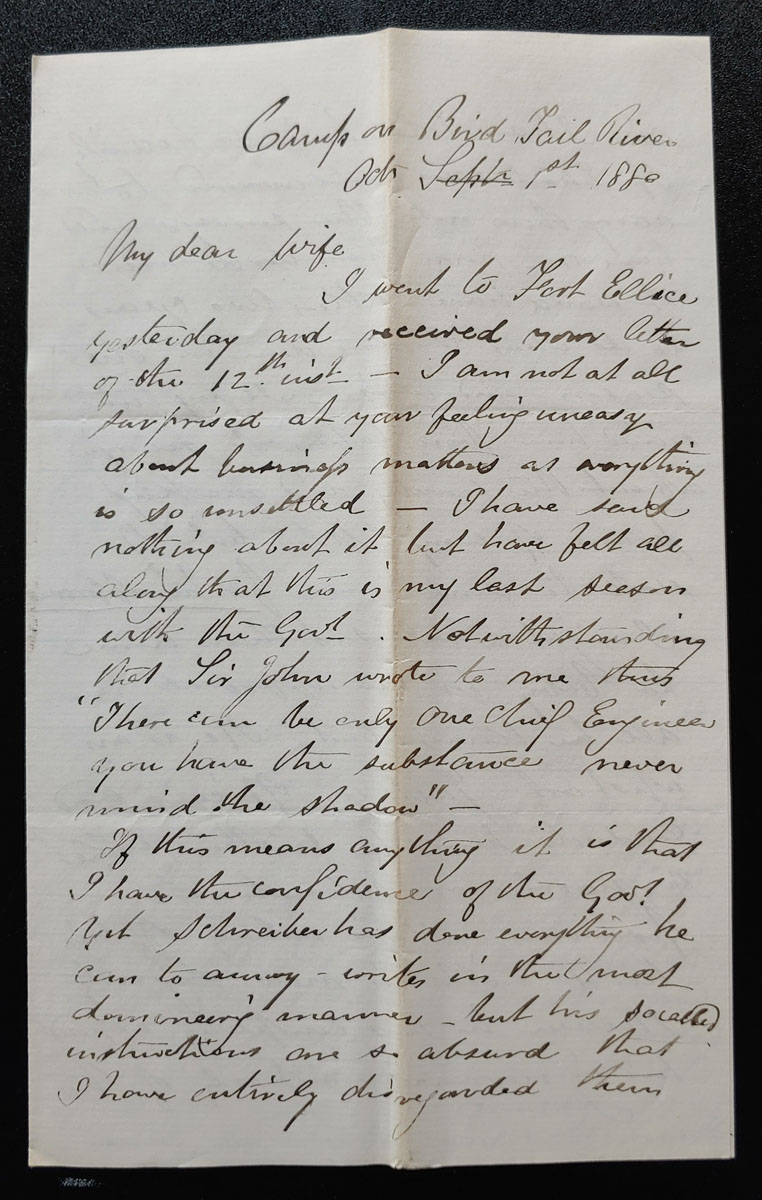 Camp on Bird Tail River
Oct Septr 1st 1880
My dear Wife
I went to Fort Ellice
yesterday and received your letter
of the 12th inst — I am not at all
surprised at your feeling uneasy
about business matters as everything
is so unsettled — I have said
nothing about it but have felt all
along that this is my last season
with the Govt. Notwithstanding
that Sir John wrote to me thus
"There can be only one Chief Engineer
you have the substance never
mind the shadow" —
If this means anything it is that
I have the confidence of the Govt
Yet Schreiber has done everything he
can to annoy - writes in the most
domineering manner - but his socalled
instructions are so absurd that
I have entirely disregarded them